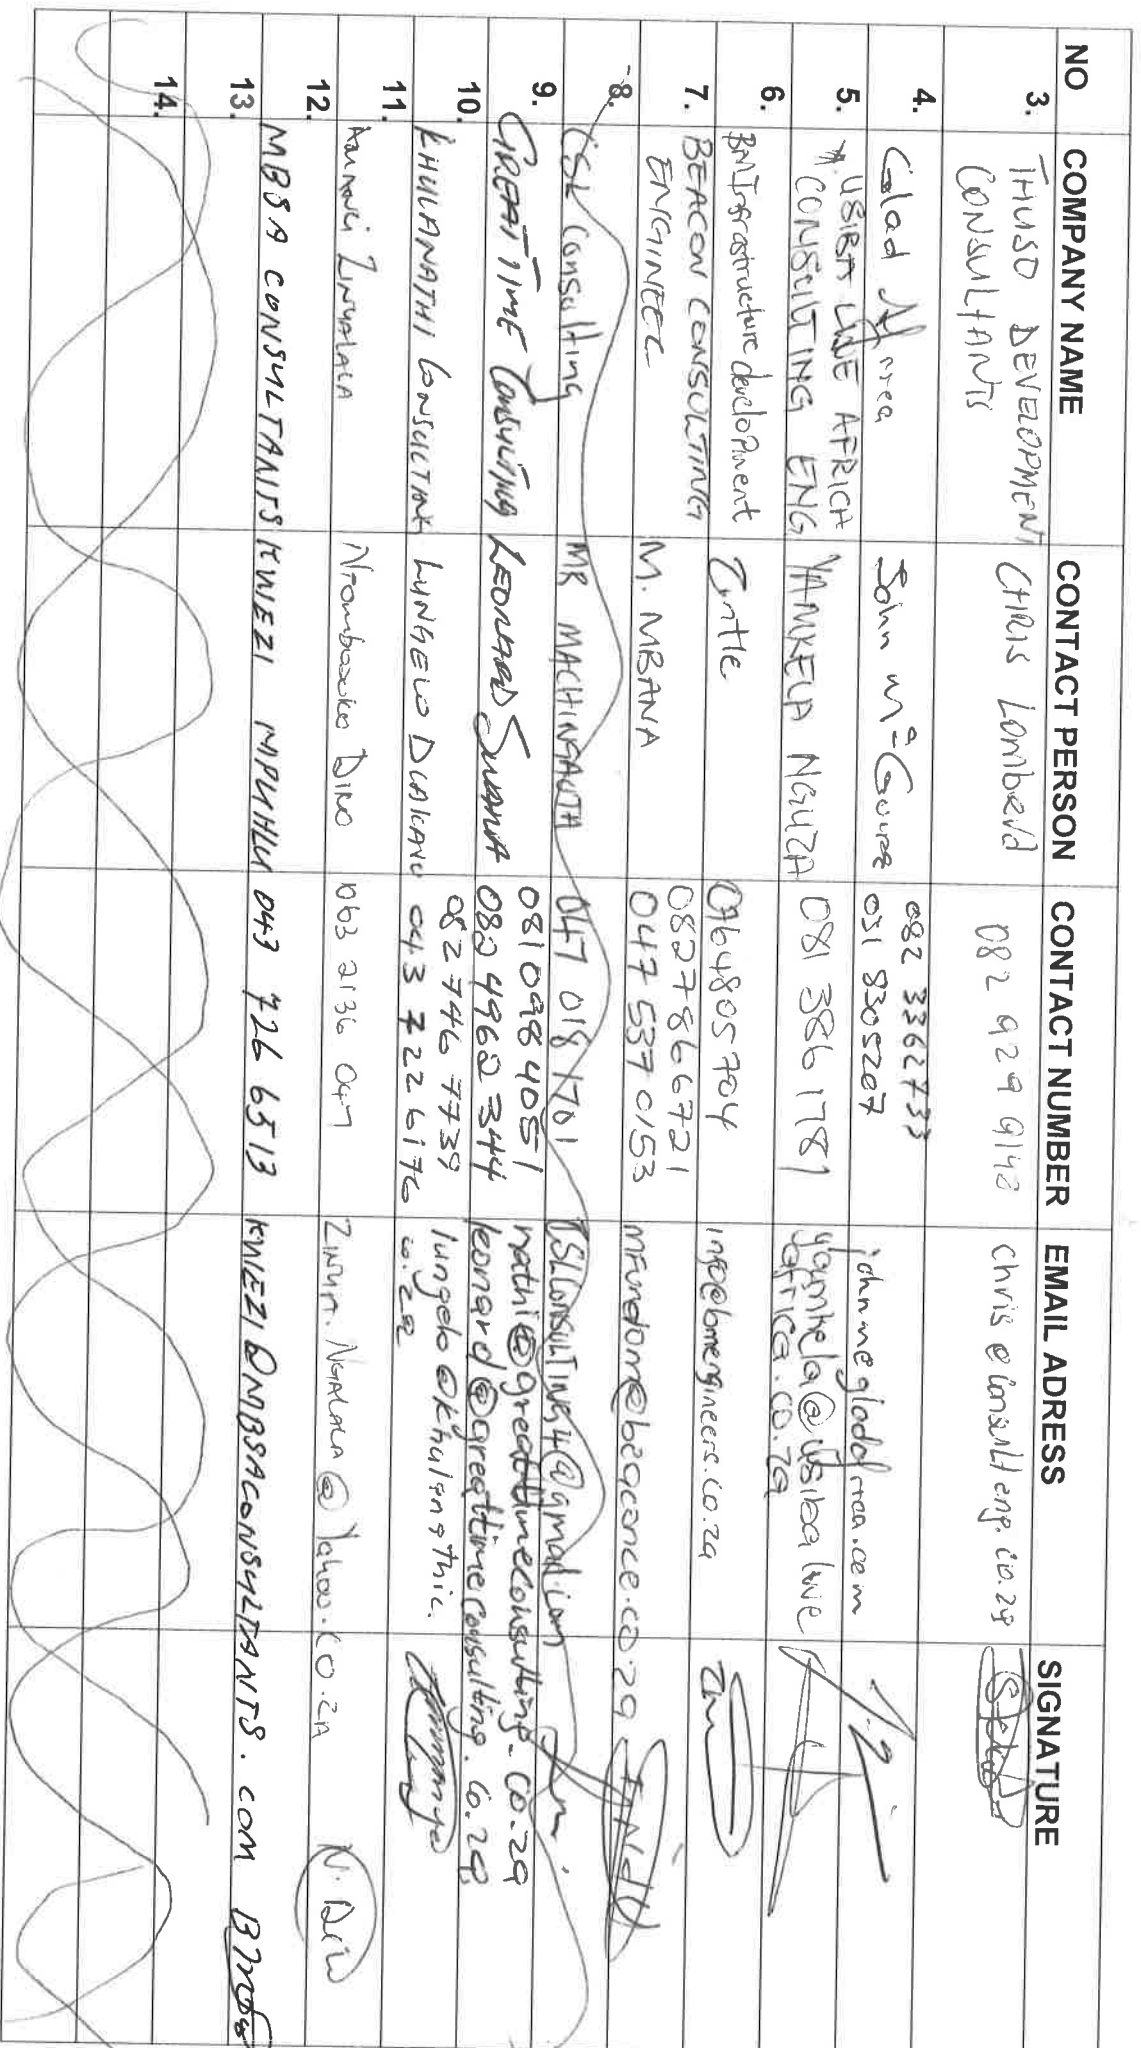 NO COMPANY NAME CONTACT PERSON CONTACT NUMBER EMAIL ADRESS SIGNATURE
3. THUSO DEVELOPMENT CONSULTANTS CHRIS Lombard 082 929 9142 chris@consulteng.co.za
4. Glad Africa John Mc-Guire 082 3362733
031 8305207 johnm@gladafrica.com
5. USIBA LWE AFRICA
CONSULTING ENG YAMKELA NGUZA 081 386 1781 yamkela@usibalwe
africa.co.za
6. BM Infrastructure development Zintle 0764805704 info@bmengineers.co.za
7. BEACON CONSULTING
ENGINEEC M. MBANA 0827866721
047 537 0153 mfundom@beaconce.co.za
8. CSL Consulting MR MACHINGAUTA 047 018 1701 CSLCONSULTING4@gmail.com
9. GREAT TIME Consulting LEONARD 0810984051
0824962344 nathi@greattimeconsulting.co.za
leonard@greattimeconsulting.co.za
10. KHULANATHI CONSULTING LUNGELO 082 746 7739
043 722 6176 lungelo@khulanathic.
co.za
11. 063 2136 047 @Yahoo.co.za N. Diko
12. MBSA CONSULTANTS KWEZI MPUHLU 043 726 6513 KWEZI@MBSACONSULTANTS.COM
13.
14.